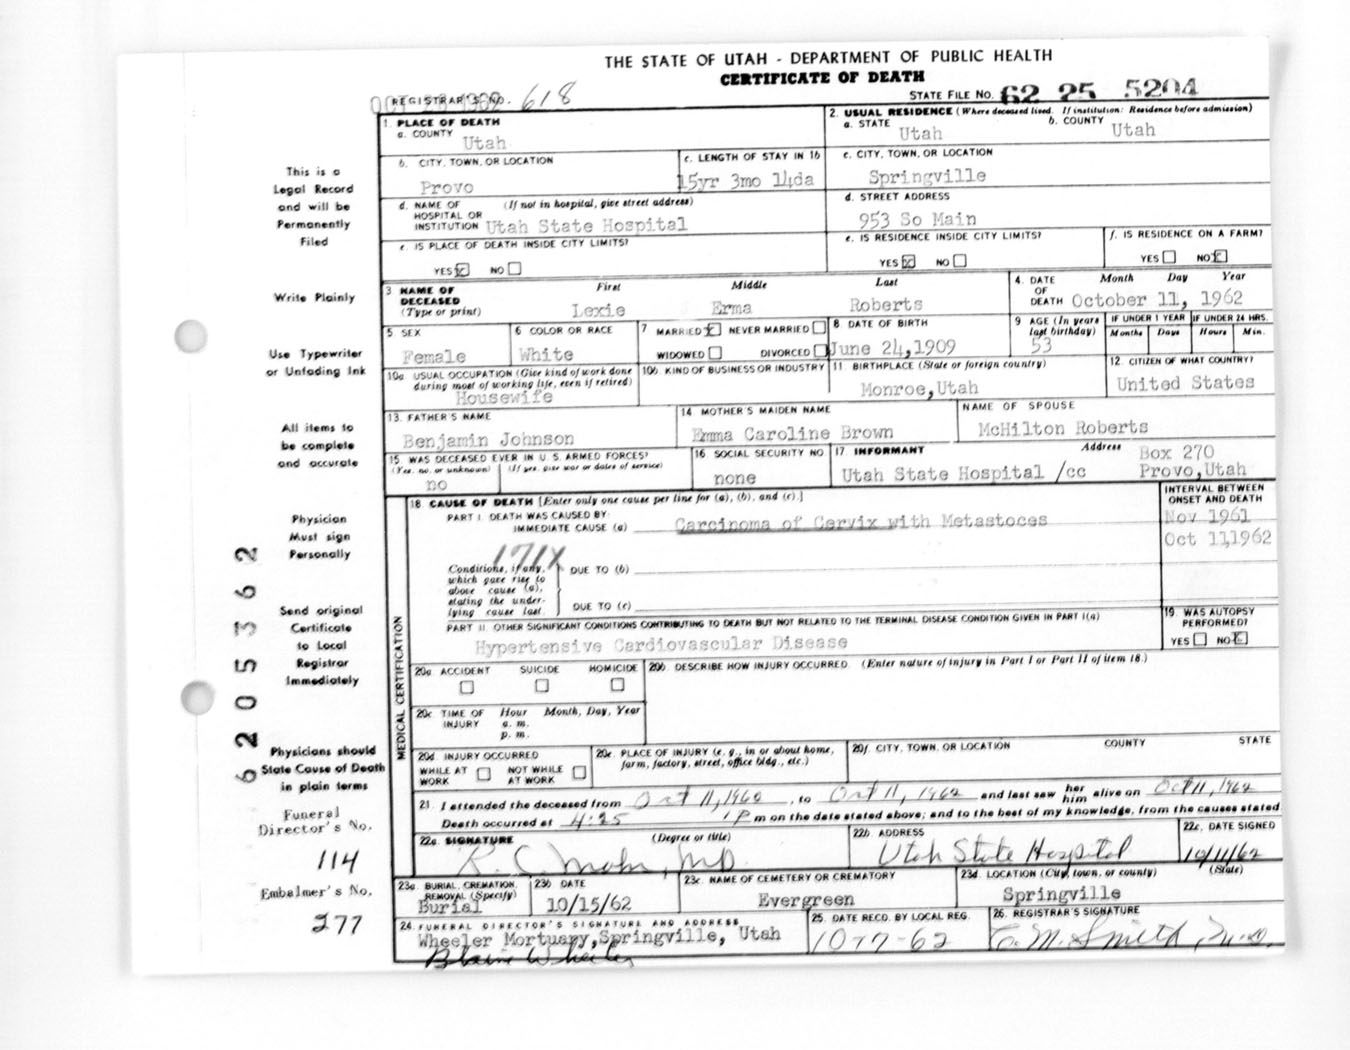 THE STATE OF UTAH - DEPARTMENT OF PUBLIC HEALTH
CERTIFICATE OF DEATH
REGISTRAR'S NO. 618
STATE FILE NO. 62 25 5204
1. PLACE OF DEATH
a. COUNTY
Utah
2. USUAL RESIDENCE (Where deceased lived. If institution: Residence before admission)
a. STATE
Utah
b. COUNTY
Utah
b. CITY, TOWN, OR LOCATION
Provo
c. LENGTH OF STAY IN 1b
15yr 3mo 14da
c. CITY, TOWN, OR LOCATION
Springville
d. NAME OF HOSPITAL OR INSTITUTION (If not in hospital, give street address)
Utah State Hospital
d. STREET ADDRESS
953 So Main
e. IS PLACE OF DEATH INSIDE CITY LIMITS?
YES NO
e. IS RESIDENCE INSIDE CITY LIMITS?
YES NO
f. IS RESIDENCE ON A FARM?
YES NO
3 NAME OF DECEASED (Type or print)
First Middle Last
Lexie Erma Roberts
4. DATE OF DEATH
Month Day Year
October 11, 1962
5 SEX
Female
6 COLOR OR RACE
White
7 MARRIED NEVER MARRIED
WIDOWED DIVORCED
8 DATE OF BIRTH
June 24,1909
9 AGE (In years last birthday)
53
IF UNDER 1 YEAR
Months Days
IF UNDER 24 HRS.
Hours Min.
10a USUAL OCCUPATION (Give kind of work done during most of working life, even if retired)
Housewife
10b KIND OF BUSINESS OR INDUSTRY
11. BIRTHPLACE (State or foreign country)
Monroe,Utah
12 CITIZEN OF WHAT COUNTRY?
United States
13. FATHER'S NAME
Benjamin Johnson
14 MOTHER'S MAIDEN NAME
Emma Caroline Brown
NAME OF SPOUSE
McHilton Roberts
15 WAS DECEASED EVER IN U.S. ARMED FORCES?
(Yes, no, or unknown) (If yes, give war or dates of service)
no
16 SOCIAL SECURITY NO
none
17 INFORMANT Address
Utah State Hospital /cc
Box 270
Provo,Utah
18 CAUSE OF DEATH [Enter only one cause per line for (a), (b), and (c).]
PART I. DEATH WAS CAUSED BY:
IMMEDIATE CAUSE (a) Carcinoma of Cervix with Metastoces
INTERVAL BETWEEN ONSET AND DEATH
Nov 1961
Oct 11,1962
171X
Conditions, if any, which gave rise to above cause (a), stating the underlying cause last.
DUE TO (b)
DUE TO (c)
PART II. OTHER SIGNIFICANT CONDITIONS CONTRIBUTING TO DEATH BUT NOT RELATED TO THE TERMINAL DISEASE CONDITION GIVEN IN PART I(a)
Hypertensive Cardiovascular Disease
19. WAS AUTOPSY PERFORMED?
YES NO
MEDICAL CERTIFICATION
20a ACCIDENT SUICIDE HOMICIDE
20b. DESCRIBE HOW INJURY OCCURRED. (Enter nature of injury in Part I or Part II of item 18.)
20c TIME OF INJURY Hour Month, Day, Year
a. m.
p. m.
20d INJURY OCCURRED
WHILE AT WORK NOT WHILE AT WORK
20e. PLACE OF INJURY (e. g., in or about home, farm, factory, street, office bldg., etc.)
20f. CITY, TOWN, OR LOCATION COUNTY STATE
21. I attended the deceased from Oct 11, 1960, to Oct 11, 1962 and last saw her him alive on Oct 11, 1962
Death occurred at 4:25 P m on the date stated above; and to the best of my knowledge, from the causes stated
22a SIGNATURE (Degree or title)
22b ADDRESS
Utah State Hospital
22c. DATE SIGNED
10/11/62
23a. BURIAL, CREMATION, REMOVAL (Specify)
Burial
23b DATE
10/15/62
23c NAME OF CEMETERY OR CREMATORY
Evergreen
23d. LOCATION (City, town, or county) (State)
Springville
24. FUNERAL DIRECTOR'S SIGNATURE AND ADDRESS
Wheeler Mortuary,Springville, Utah
Blaine Wheeler
25. DATE RECD. BY LOCAL REG.
10-17-62
26. REGISTRAR'S SIGNATURE
C. M. Smith, M.D.
This is a
Legal Record
and will be
Permanently
Filed
Write Plainly
Use Typewriter
or Unfading Ink
All items to
be complete
and accurate
Physician
Must sign
Personally
Send original
Certificate
to Local
Registrar
Immediately
Physicians should
State Cause of Death
in plain terms
Funeral
Director's No.
114
Embalmer's No.
277
6205362